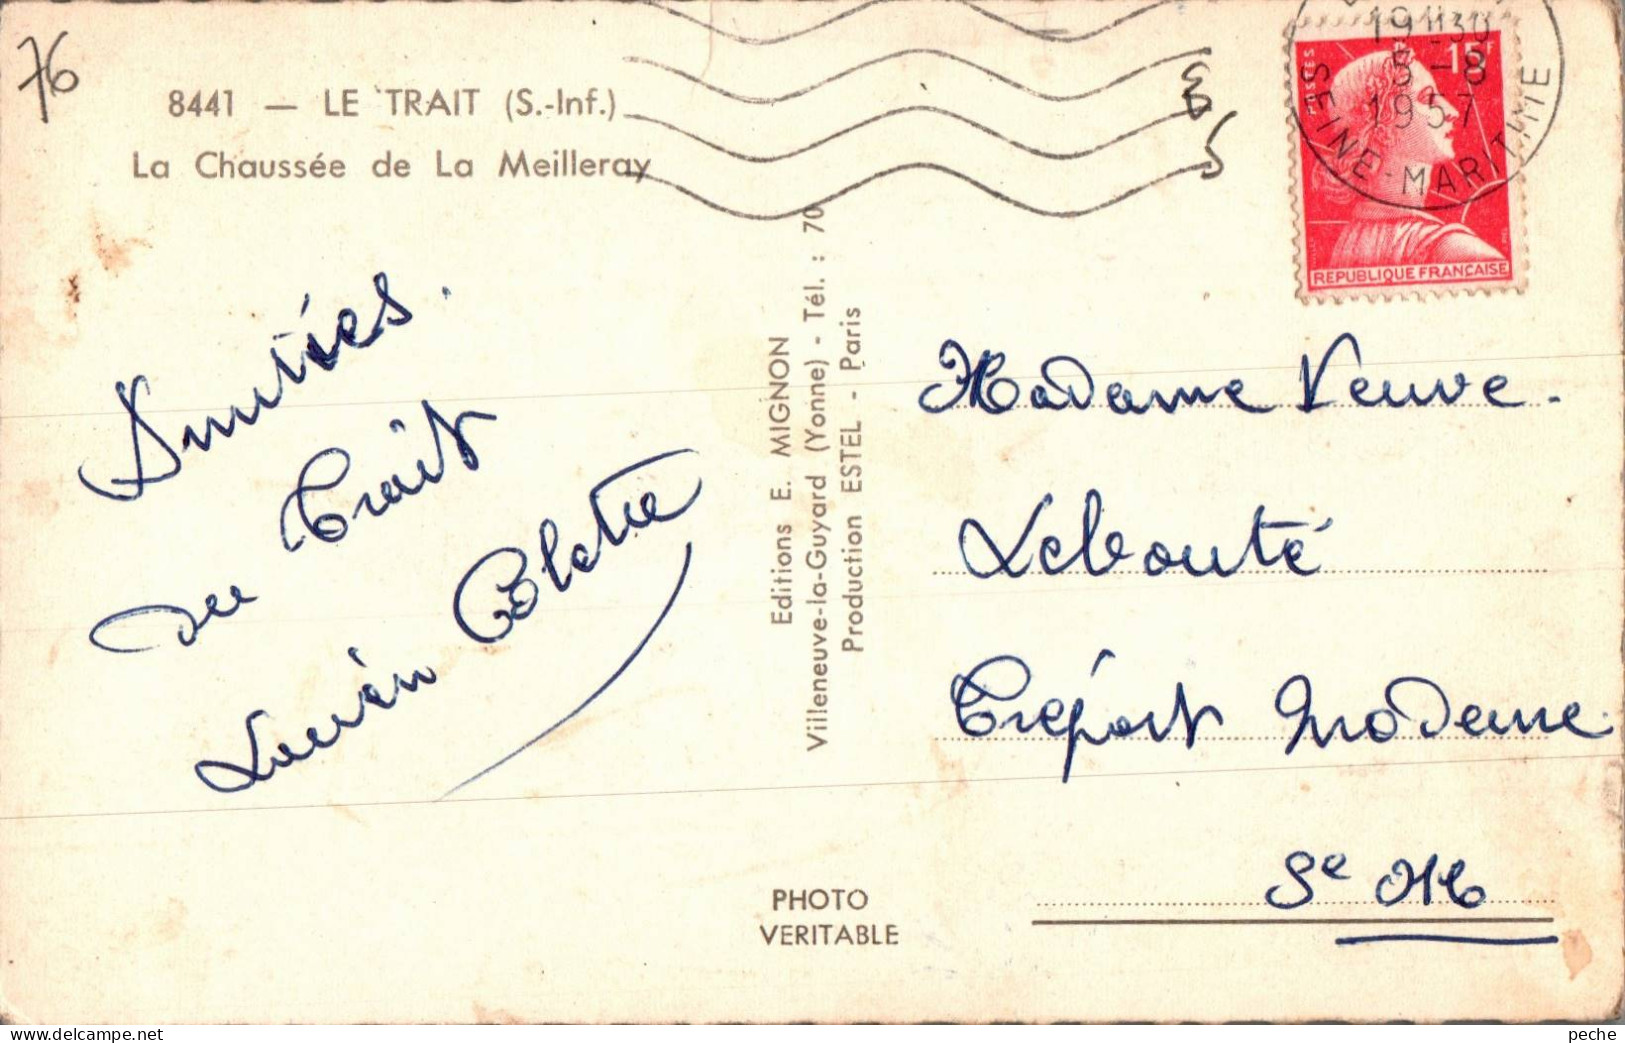 76
8441 — LE TRAIT (S.-Inf.)
La Chaussée de La Meilleray
Amitiés.
du Trait
Lucien Colette
Editions E. MIGNON
Villeneuve-la-Guyard (Yonne) - Tél. : 70
Production ESTEL - Paris
PHOTO
VERITABLE
19H30
5 - 8
1957
SEINE-MARITIME
15F
POSTES
REPUBLIQUE FRANÇAISE
Madame Veuve
Lebouté
Tréport Moderne
Se Mme
peche